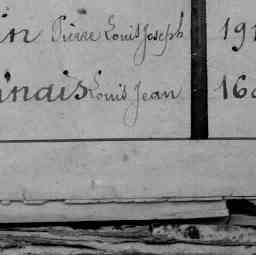 in Pierre Louis Joseph 191
nais Louis Jean 160